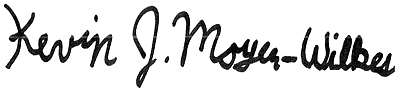 Kevin J. Moyer-Wilkes